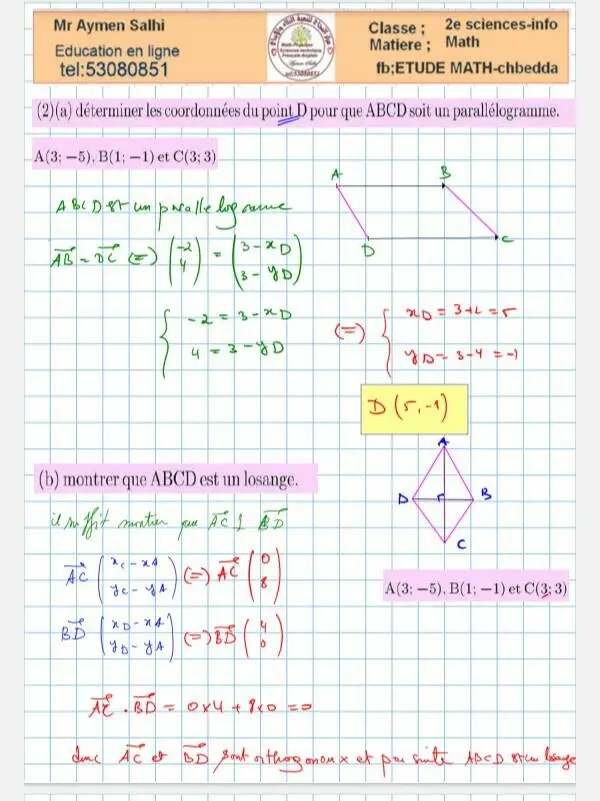 Mr Aymen Salhi
Education en ligne
tel:53080851
Classe ; 2e sciences-info
Matiere ; Math
fb;ETUDE MATH-chbedda
(2)(a) déterminer les coordonnées du point D pour que ABCD soit un parallélogramme.
A(3; −5), B(1; −1) et C(3; 3)
A B
D C
ABCD est un parallelogramme
AB = DC (=) (-2 4) = (3-xD 3-yD)
{ -2 = 3-xD
4 = 3-yD
(=) { xD = 3+2 = 5
yD = 3-4 = -1
D (5,-1)
(b) montrer que ABCD est un losange.
A
D B
C
il suffit montrer que AC ⊥ BD
A(3; −5), B(1; −1) et C(3; 3)
AC (xC - xA yC - yA) (=) AC (0 8)
BD (xD - xA yD - yA) (=) BD (4 0)
AC . BD = 0x4 + 8x0 = 0
donc AC et BD sont orthogonaux et par suite ABCD est un losange